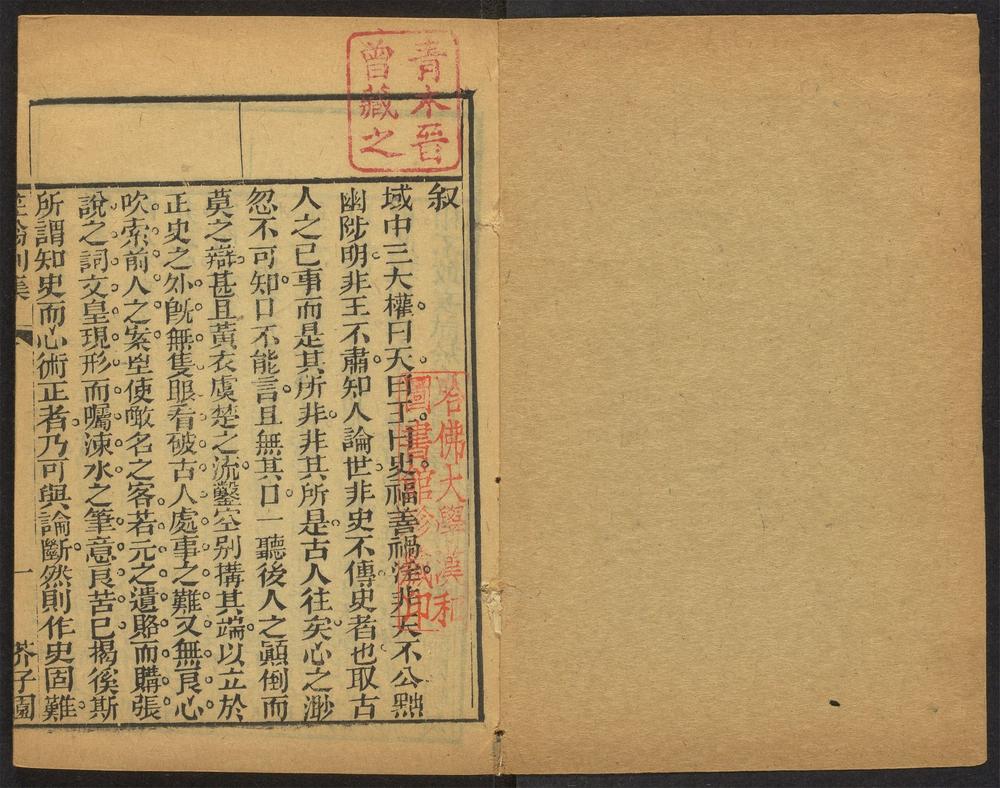 青木晉
曾藏之
哈佛大學漢和
圖書館珍藏印
叙
域中三大權曰天曰王曰史福善禍淫非天不公黜
幽陟明非王不肅知人論世非史不傳史者也取古
人之已事而是其所非非其所是古人往矣心之渺
忽不可知口不能言且無其口一聽後人之顚倒而
莫之辯甚且黃衣虞楚之流鑿空别搆其端以立於
正史之外旣無隻眼看破古人處事之難又無良心
吹索前人之案皇使噉名之客若元之遺賂而購張
說之詞文皇現形而囑涑水之筆意良苦已揭傒斯
所謂知史而心術正者乃可與論斷然則作史固難
笠翁别集
一
芥子園